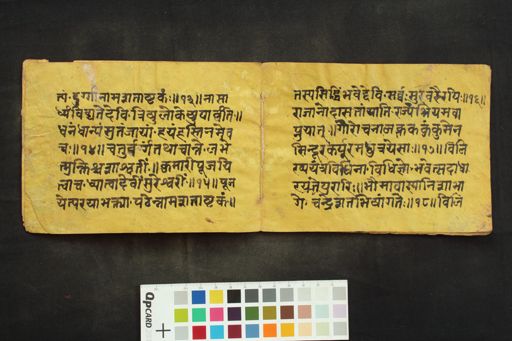 त्यं दुर्गानामशताष्टकं ॥१३॥ नासा
ध्यंविद्यतेदेवि त्रिषुलोकेषुपार्वति ॥
धनंधान्यंसुतंजायां हयंहस्तिनमेवच
चः ॥१४॥ चतुर्वर्गंतथाचान्ते लभे
न्मुक्तिंचशाश्वतीं ॥ कुमारींपूजयि
त्वाच ध्यात्वादेवींसुरेश्वरीं ॥१५॥ पूज
येत्परयाभक्त्या पठेन्नामशताष्टकं ॥
तस्यसिद्धिर्भवेद्देवि सर्वैः सुरवरैरपिः ॥१६॥
राजानोदासतांयान्ति राज्यश्रियमवा
प्नुयात् ॥ गोरोचनालक्तककुंकुमेन
सिन्दूरकर्पूरमधुत्रयेण ॥१७॥ विलि
ख्ययंत्रंविधिनाविधिज्ञो भवेत्सदाधा
रयतेपुरारिः ॥ भौमावास्यानिशाभा
गे चन्द्रेशतभिषांगते ॥१८॥ विलि
QPCARD